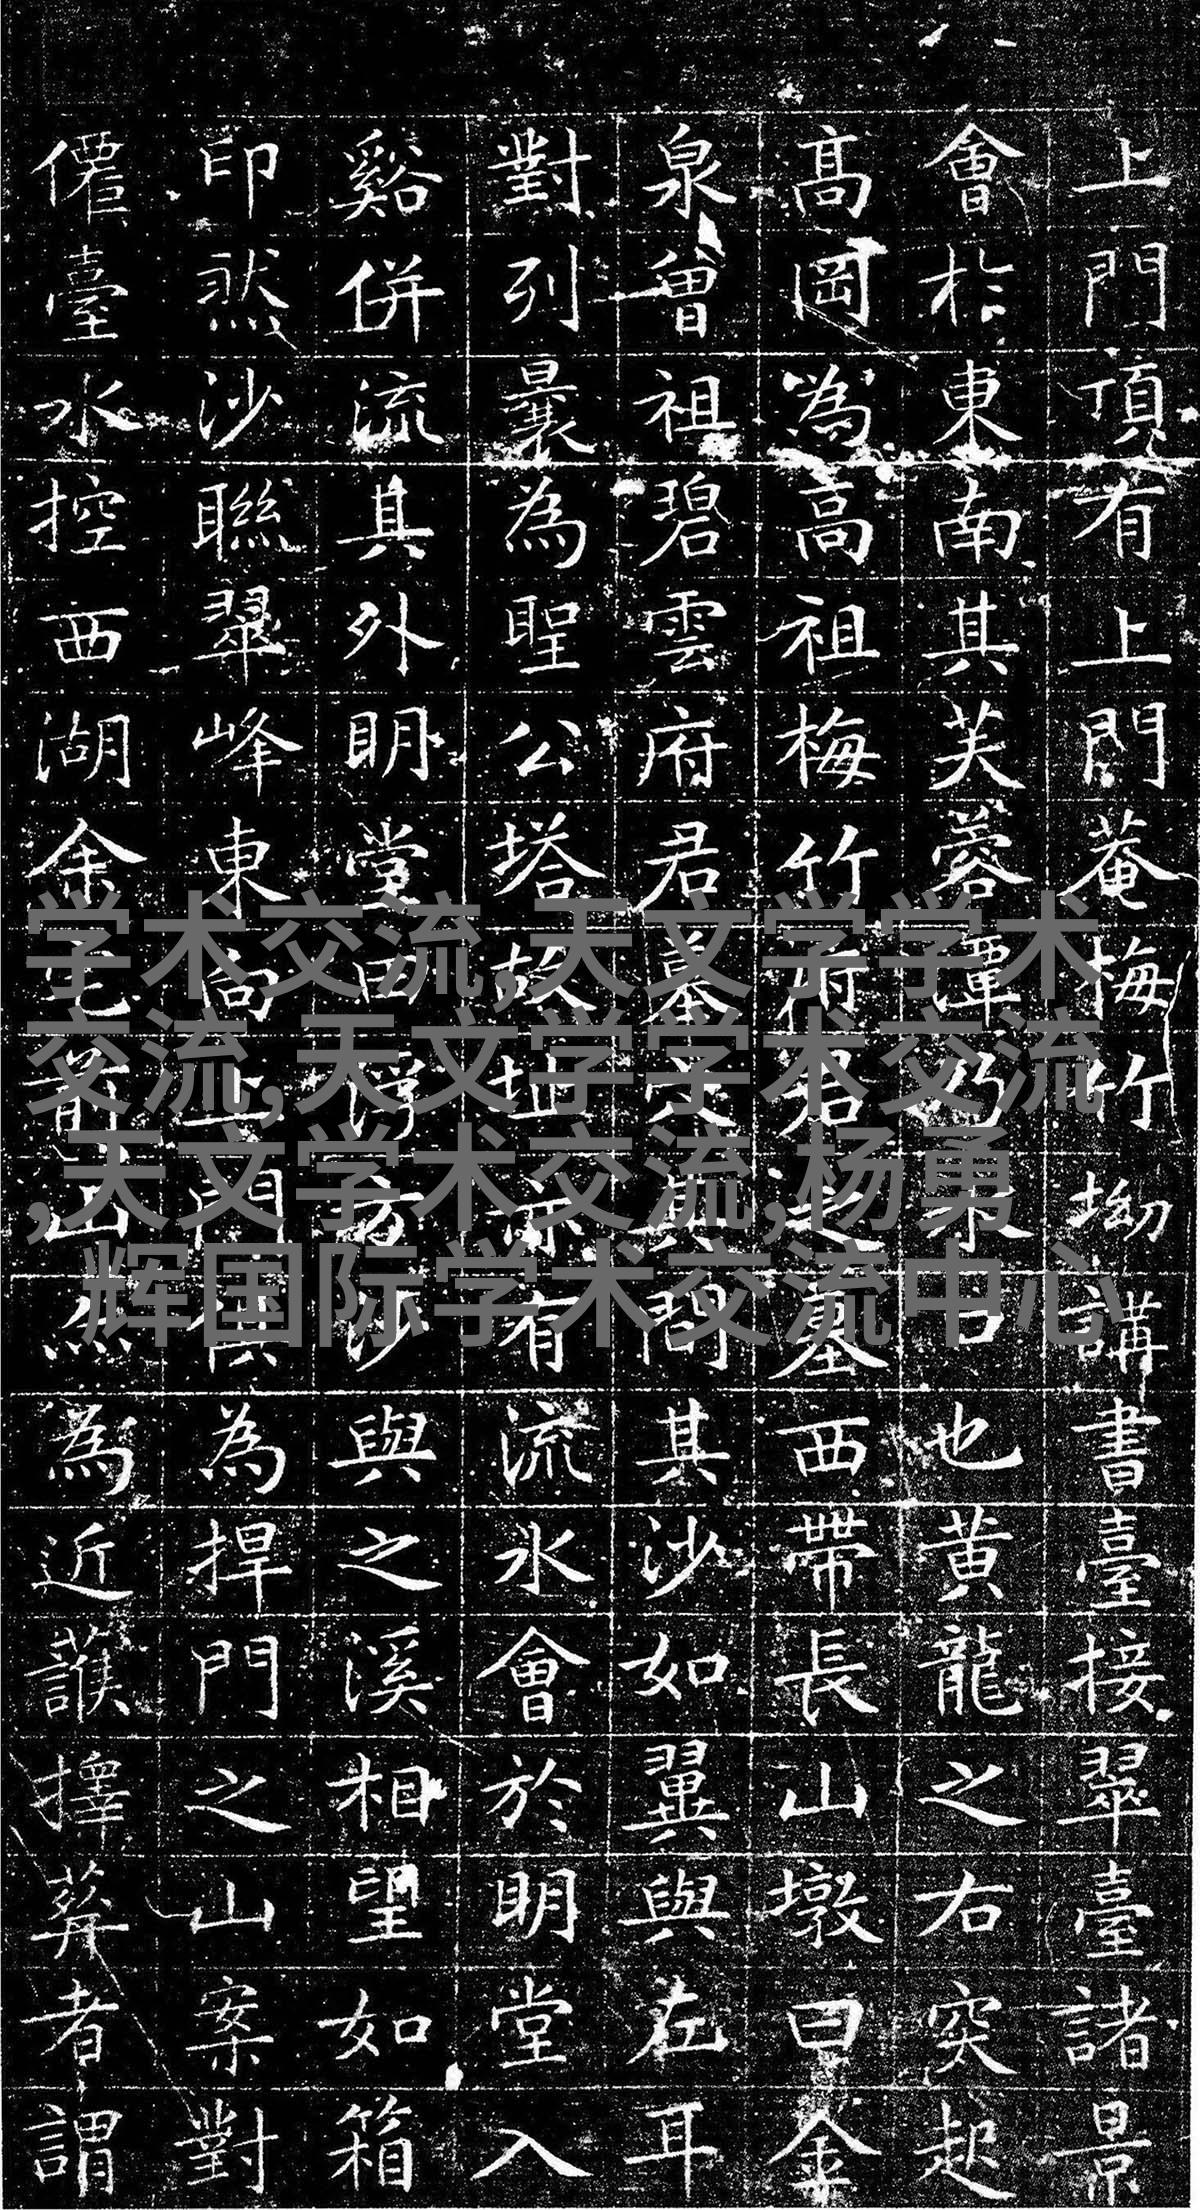 上門頂有上門菴梅竹坳講書臺接翠臺諸景
會於東南其芙蓉潭乃水口也黃龍之右突起
高岡為高祖梅竹府君之墓西帶長山墩曰金
泉曾祖碧雲府君墓間其沙如翼與左耳
對列曩為聖公塔故址亦有流水會於明堂入
谿併流其外明堂田浮方沙與之溪相望如箱
印然沙聯翠峰東向上門供為捍門之山案對
僊臺水控西湖余宅前山然為近擇葬者謂
学术交流,天文学学术
交流,天文学学术交流
,天文学术交流,杨勇
辉国际学术交流中心